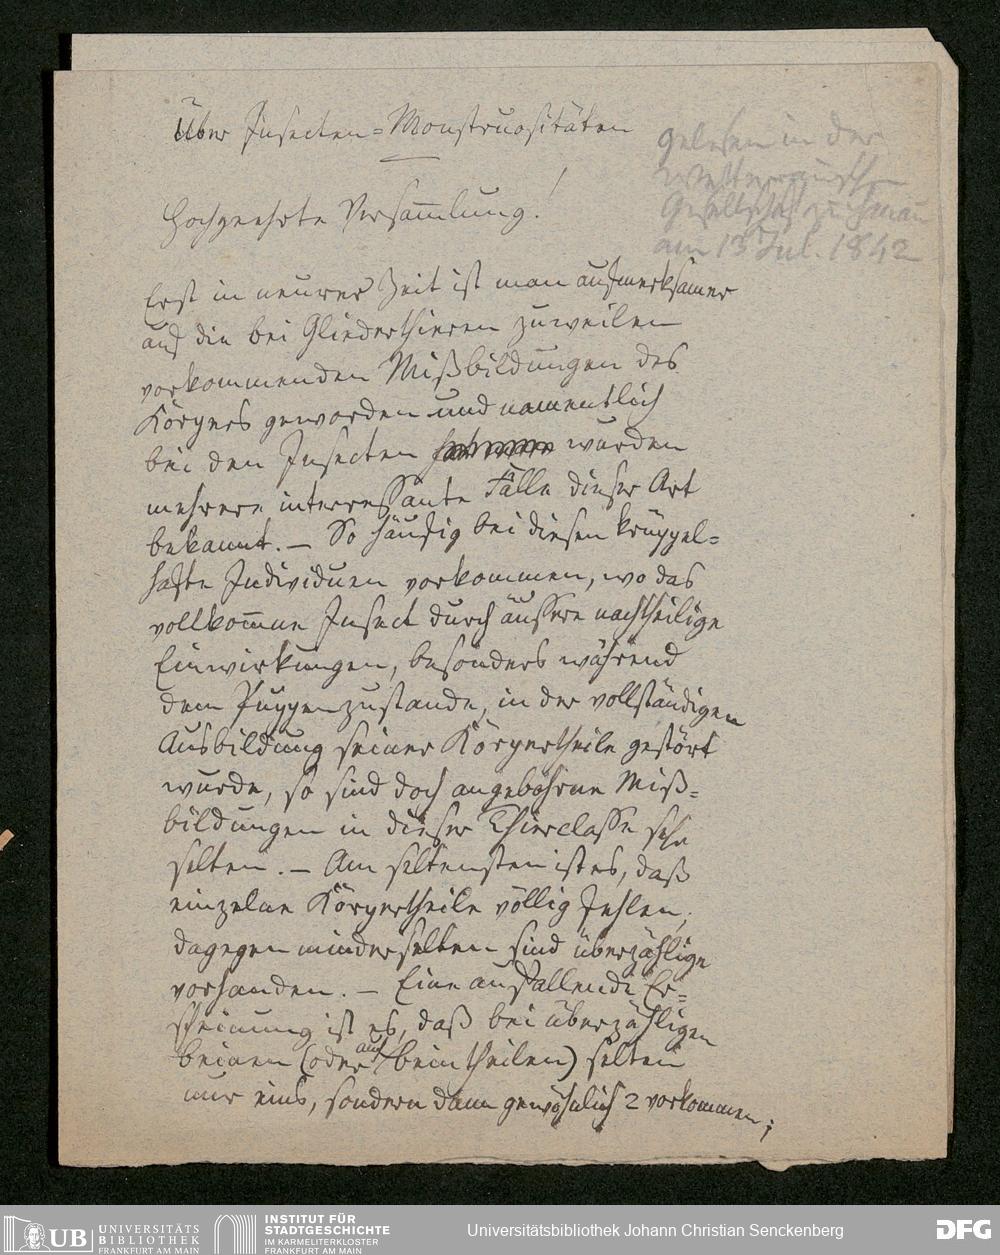 Über Insecten-Monstruositäten
gelesen in der
Wetterauisch
Gesellschaft zu Hanau
am 13 Jul. 1842
Hochgeehrte Versam̄lung!
Erst in neurer Zeit ist man aufmerksamer
auf die bei Gliederthieren zuweilen
vorkommenden Mißbildungen des
Körpers geworden und namentlich
bei den Insecten wurden
mehrere interressante Fälle dieser Art
bekannt. – So häufig bei diesen krüppel=
hafte Individuen vorkommen, wo das
vollkom̄ne Insect durch äussere nachtheilige
Einwirkungen, besonders während
dem Puppenzustande, in der vollständigen
Ausbildung seiner Körpertheile gestört
wurde, so sind doch angebohrne Miß=
bildungen in dieser Thierclasse sehr
selten. – Am seltensten ist es, daß
einzelne Körpertheile völlig fehlen,
dagegen minder selten sind überzählige
vorhanden. – Eine auffallende Er=
scheinung ist es, daß bei überzähligen
Beinen (oder auch Beintheilen) selten
nur eins, sondern dann gewöhnlich 2 vorkommen;
UB UNIVERSITÄTS
BIBLIOTHEK
FRANKFURT AM MAIN
INSTITUT FÜR
STADTGESCHICHTE
IM KARMELITERKLOSTER
FRANKFURT AM MAIN
Universitätsbibliothek Johann Christian Senckenberg
DFG